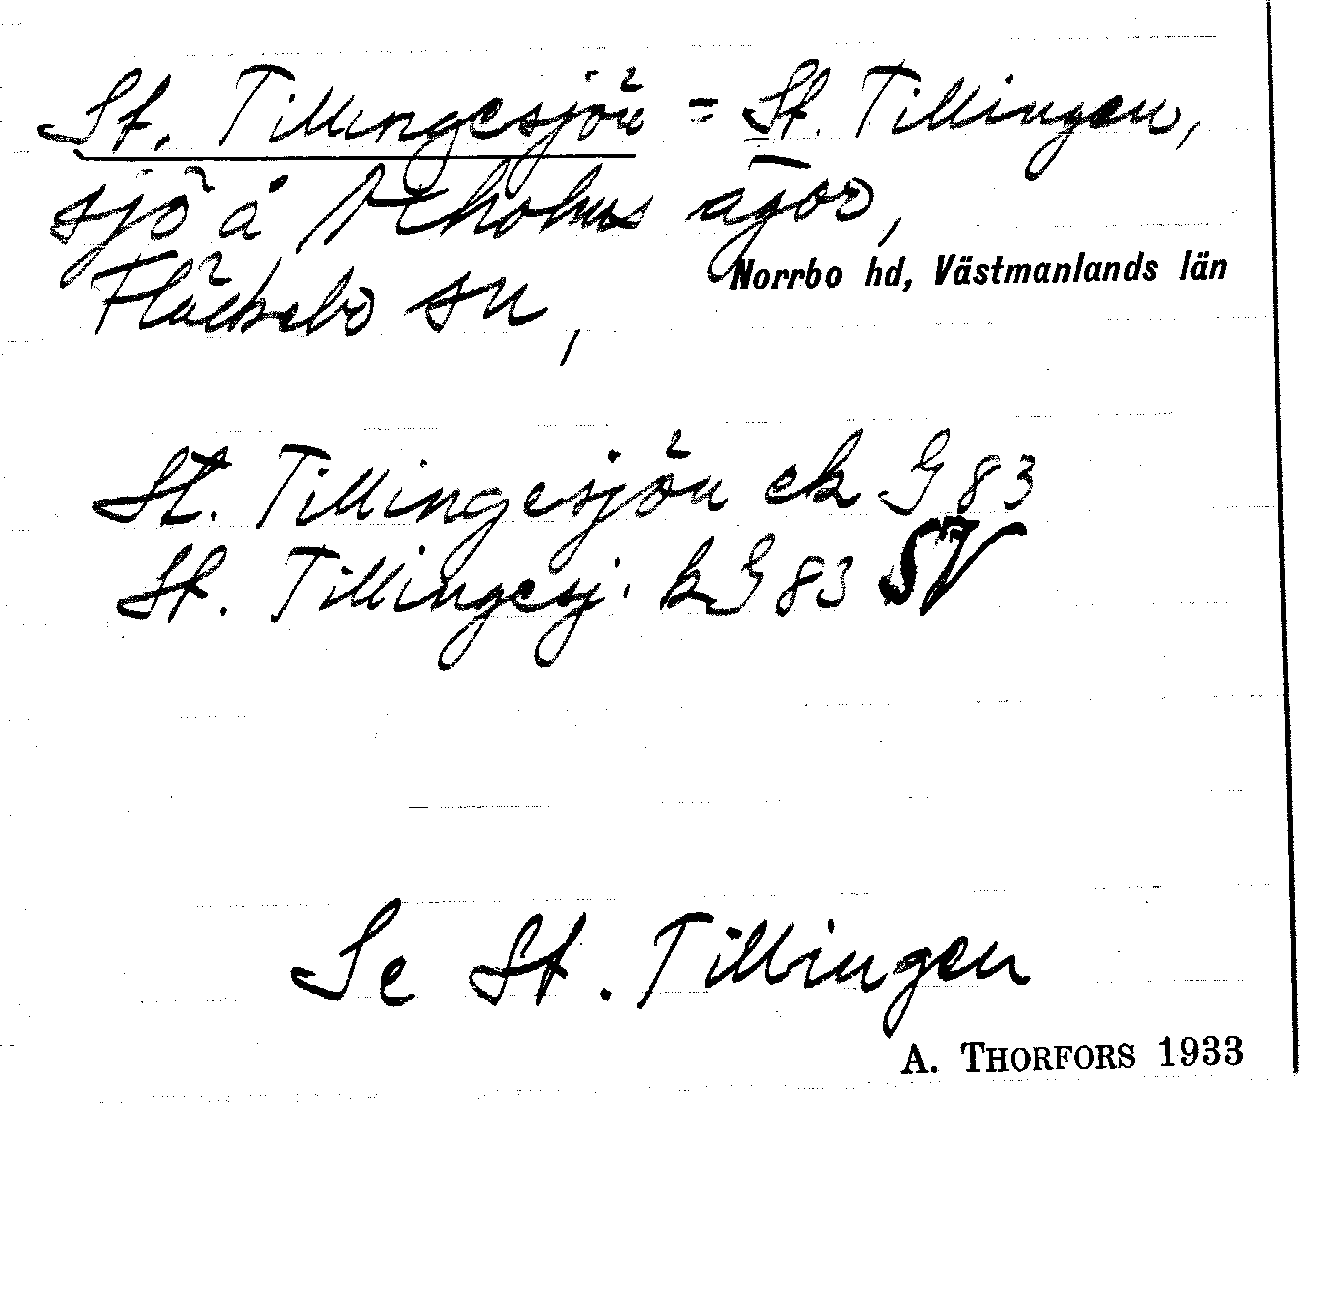 St. Tillingesjön = St. Tillingen,
sjö å ägor,
Fläckebo sn,
Norrbo hd, Västmanlands län
St. Tillingesjön ek G 83
St. Tillingesj. k G 83 SV
Se St. Tillingen
A. THORFORS 1933